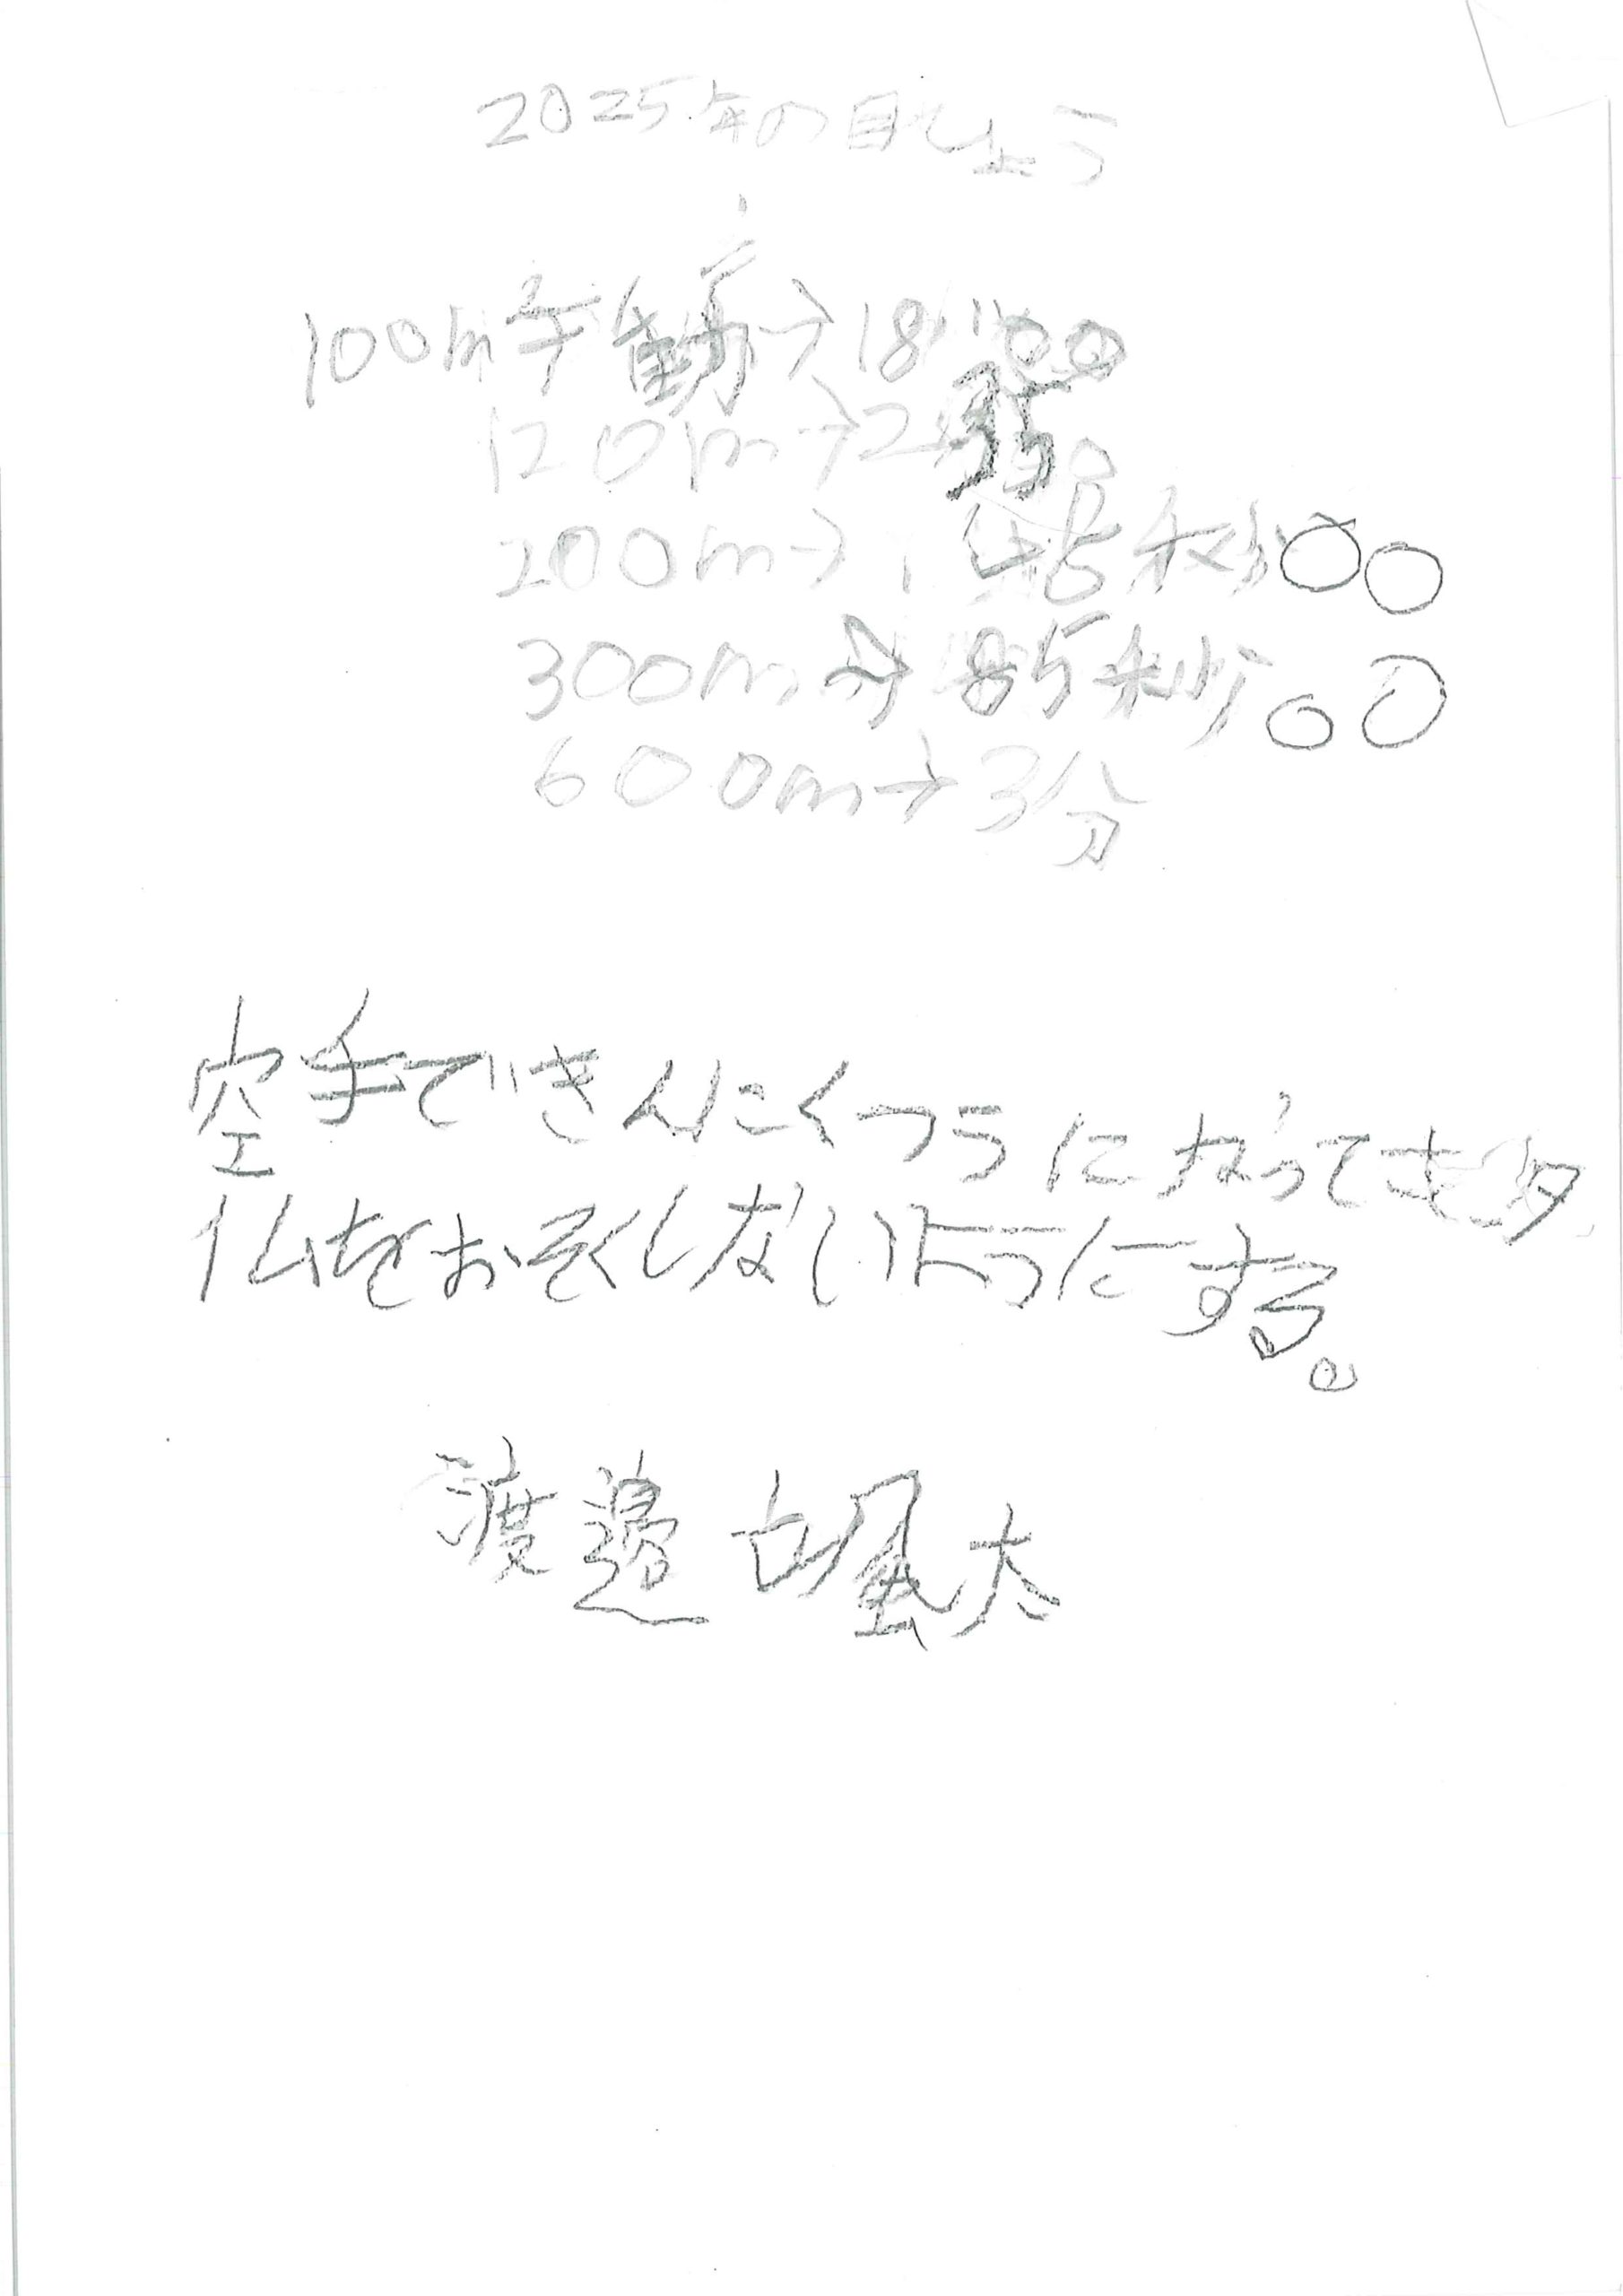 2025年の目ひょう
100m →18"00
120m→2
200m→ 秒00
300m→ 85秒00
600m→3分
空手できんにくつうになってもタ
イムをおそくしないようにする。
渡邉 颯太